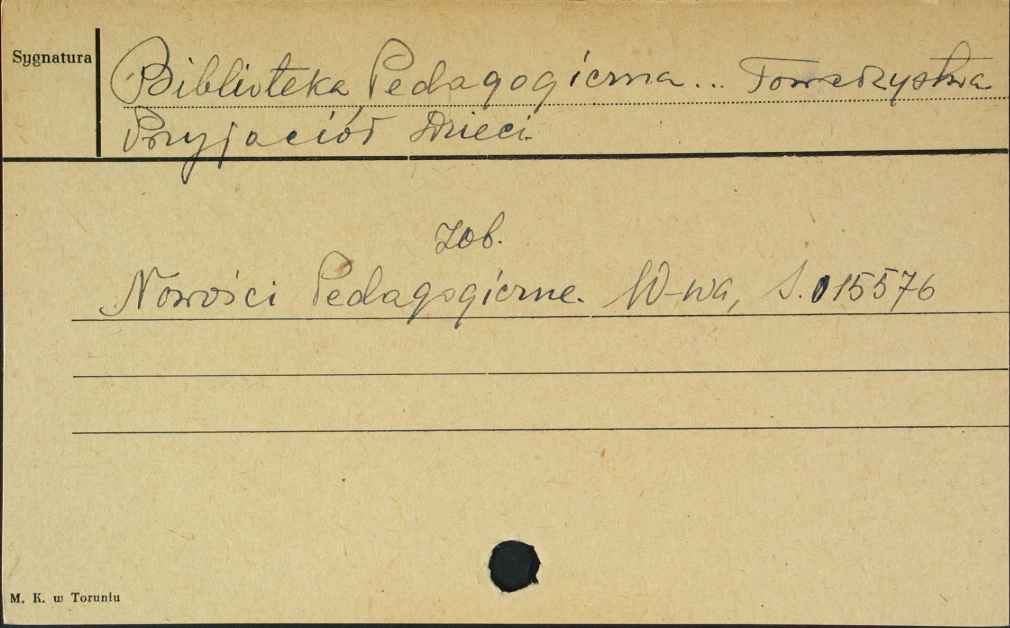 Sygnatura
Biblioteka Pedagogiczna... Towarzystwa
Przyjaciół Dzieci
Zob.
Nowości Pedagogiczne. W-wa, S. 015576
M. K. w Toruniu